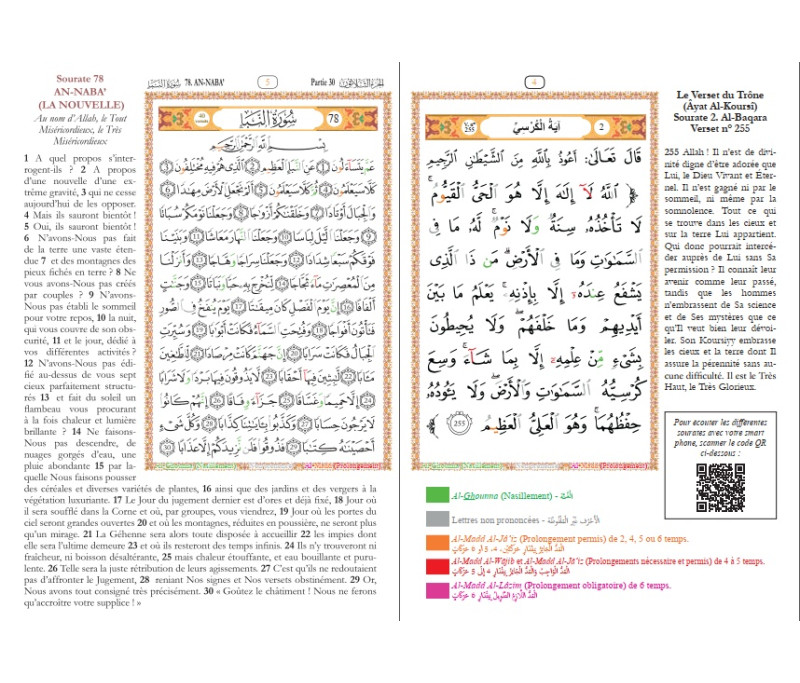 Sourate 78
AN-NABA'
(LA NOUVELLE)
Au nom d'Allah, le Tout
Miséricordieux, le Très
Miséricordieux
1 A quel propos s'inter-
rogent-ils ? 2 A propos
d'une nouvelle d'une ex-
trême gravité, 3 qui ne cesse
aujourd'hui de les opposer.
4 Mais ils sauront bientôt !
5 Oui, ils sauront bientôt !
6 N'avons-Nous pas fait
de la terre une vaste éten-
due 7 et des montagnes des
pieux fichés en terre ? 8 Ne
vous avons-Nous pas créés
par couples ? 9 N'avons-
Nous pas établi le sommeil
pour votre repos, 10 la nuit,
qui vous couvre de son obs-
curité, 11 et le jour, dédié à
vos différentes activités ?
12 N'avons-Nous pas édi-
fié au-dessus de vous sept
cieux parfaitement structu-
rés 13 et fait du soleil un
flambeau vous procurant
à la fois chaleur et lumière
brillante ? 14 Ne faisons-
Nous pas descendre, de
nuages gorgés d'eau, une
pluie abondante 15 par la-
quelle Nous faisons pousser
des céréales et diverses variétés de plantes, 16 ainsi que des jardins et des vergers à la
végétation luxuriante. 17 Le Jour du jugement dernier est d'ores et déjà fixé, 18 Jour où
il sera soufflé dans la Corne et où, par groupes, vous viendrez, 19 Jour où les portes du
ciel seront grandes ouvertes 20 et où les montagnes, réduites en poussière, ne seront plus
qu'un mirage. 21 La Géhenne sera alors toute disposée à accueillir 22 les impies dont
elle sera l'ultime demeure 23 et où ils resteront des temps infinis. 24 Ils n'y trouveront ni
fraîcheur, ni boisson désaltérante, 25 mais chaleur étouffante, et eau bouillante et puru-
lente. 26 Telle sera la juste rétribution de leurs agissements. 27 C'est qu'ils ne redoutaient
pas d'affronter le Jugement, 28 reniant Nos signes et Nos versets obstinément. 29 Or,
Nous avons tout consigné très précisément. 30 « Goûtez le châtiment ! Nous ne ferons
qu'accroître votre supplice ! »
سُورَةُ النَّبَإِ 78. AN-NABA' 5 Partie 30 الجزء الثلاثون
40 سُورَةُ النَّبَإِ 78
بِسْمِ اللَّهِ الرَّحْمَٰنِ الرَّحِيمِ
عَمَّ يَتَسَاءَلُونَ (1) عَنِ النَّبَإِ الْعَظِيمِ (2) الَّذِي هُمْ فِيهِ مُخْتَلِفُونَ (3)
كَلَّا سَيَعْلَمُونَ (4) ثُمَّ كَلَّا سَيَعْلَمُونَ (5) أَلَمْ نَجْعَلِ الْأَرْضَ مِهَادًا (6)
وَالْجِبَالَ أَوْتَادًا (7) وَخَلَقْنَاكُمْ أَزْوَاجًا (8) وَجَعَلْنَا نَوْمَكُمْ سُبَاتًا
(9) وَجَعَلْنَا اللَّيْلَ لِبَاسًا (10) وَجَعَلْنَا النَّهَارَ مَعَاشًا (11) وَبَنَيْنَا
فَوْقَكُمْ سَبْعًا شِدَادًا (12) وَجَعَلْنَا سِرَاجًا وَهَّاجًا (13) وَأَنزَلْنَا
مِنَ الْمُعْصِرَاتِ مَاءً ثَجَّاجًا (14) لِنُخْرِجَ بِهِ حَبًّا وَنَبَاتًا (15) وَجَنَّاتٍ
أَلْفَافًا (16) إِنَّ يَوْمَ الْفَصْلِ كَانَ مِيقَاتًا (17) يَوْمَ يُنفَخُ فِي الصُّورِ
فَتَأْتُونَ أَفْوَاجًا (18) وَفُتِحَتِ السَّمَاءُ فَكَانَتْ أَبْوَابًا (19) وَسُيِّرَتِ
الْجِبَالُ فَكَانَتْ سَرَابًا (20) إِنَّ جَهَنَّمَ كَانَتْ مِرْصَادًا (21) لِلطَّاغِينَ
مَآبًا (22) لَابِثِينَ فِيهَا أَحْقَابًا (23) لَا يَذُوقُونَ فِيهَا بَرْدًا وَلَا شَرَابًا
(24) إِلَّا حَمِيمًا وَغَسَّاقًا (25) جَزَاءً وِفَاقًا (26) إِنَّهُمْ كَانُوا
لَا يَرْجُونَ حِسَابًا (27) وَكَذَّبُوا بِآيَاتِنَا كِذَّابًا (28) وَكُلَّ شَيْءٍ
أَحْصَيْنَاهُ كِتَابًا (29) فَذُوقُوا فَلَن نَّزِيدَكُمْ إِلَّا عَذَابًا (30)
4
V. n° 255 آيَةُ الْكُرْسِيِّ 2
قَالَ تَعَالَىٰ: أَعُوذُ بِاللَّهِ مِنَ الشَّيْطَٰنِ الرَّجِيمِ
﴿ اللَّهُ لَا إِلَٰهَ إِلَّا هُوَ الْحَيُّ الْقَيُّومُ ۚ
لَا تَأْخُذُهُ سِنَةٌ وَلَا نَوْمٌ ۚ لَهُ مَا فِي
السَّمَٰوَٰتِ وَمَا فِي الْأَرْضِ ۗ مَن ذَا الَّذِي
يَشْفَعُ عِندَهُ إِلَّا بِإِذْنِهِ ۚ يَعْلَمُ مَا بَيْنَ
أَيْدِيهِمْ وَمَا خَلْفَهُمْ ۖ وَلَا يُحِيطُونَ
بِشَيْءٍ مِّنْ عِلْمِهِ إِلَّا بِمَا شَاءَ ۚ وَسِعَ
كُرْسِيُّهُ السَّمَٰوَٰتِ وَالْأَرْضَ ۖ وَلَا يَئُودُهُ
حِفْظُهُمَا ۚ وَهُوَ الْعَلِيُّ الْعَظِيمُ (255) ﴾
Le Verset du Trône
(Âyat Al-Koursî)
Sourate 2. Al-Baqara
Verset n° 255
255 Allah ! Il n'est de divi-
nité digne d'être adorée que
Lui, le Dieu Vivant et Eter-
nel. Il n'est gagné ni par le
sommeil, ni même par la
somnolence. Tout ce qui
se trouve dans les cieux et
sur la terre Lui appartient.
Qui donc pourrait intercé-
der auprès de Lui sans Sa
permission ? Il connaît leur
avenir comme leur passé,
tandis que les hommes
n'embrassent de Sa science
et de Ses mystères que ce
qu'Il veut bien leur dévoi-
ler. Son Koursiyy embrasse
les cieux et la terre dont Il
assure la pérennité sans au-
cune difficulté. Il est le Très
Haut, le Très Glorieux.
Pour écouter les différentes
sourates avec votre smart
phone, scanner le code QR
ci-dessous :
Al-Ghounna (Nasillement) - الغُنَّة
Lettres non prononcées - الأحرف غير الملفوظة
Al-Madd Al-Jâ'iz (Prolongement permis) de 2, 4, 5 ou 6 temps.
Al-Madd Al-Wâjib et Al-Madd Al-Jâ'iz (Prolongements nécessaire et permis) de 4 à 5 temps.
Al-Madd Al-Lâzim (Prolongement obligatoire) de 6 temps.